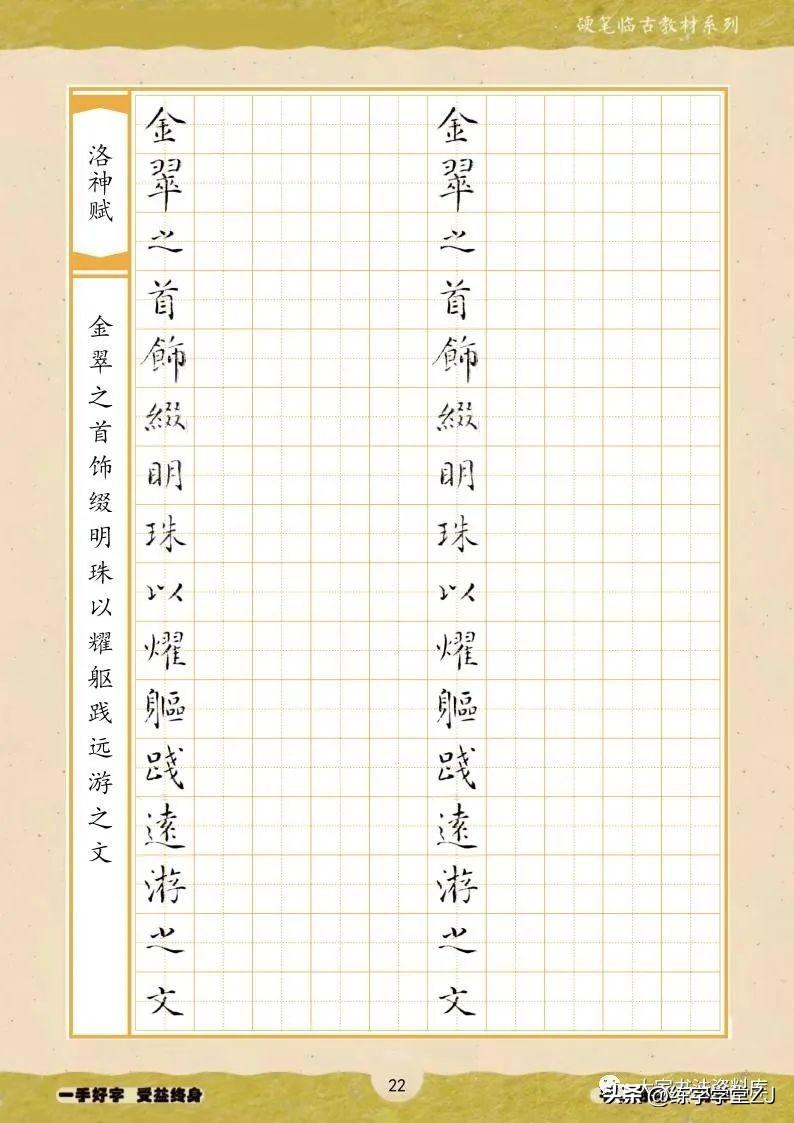 硬笔临古教材系列
洛神赋
金翠之首饰缀明珠以耀躯践远游之文
金翠之首飾綴明珠以耀軀踐遠游之文
金翠之首飾綴明珠以耀軀踐遠游之文
22
一手好字 受益终身
头条 @练字学堂ZJ